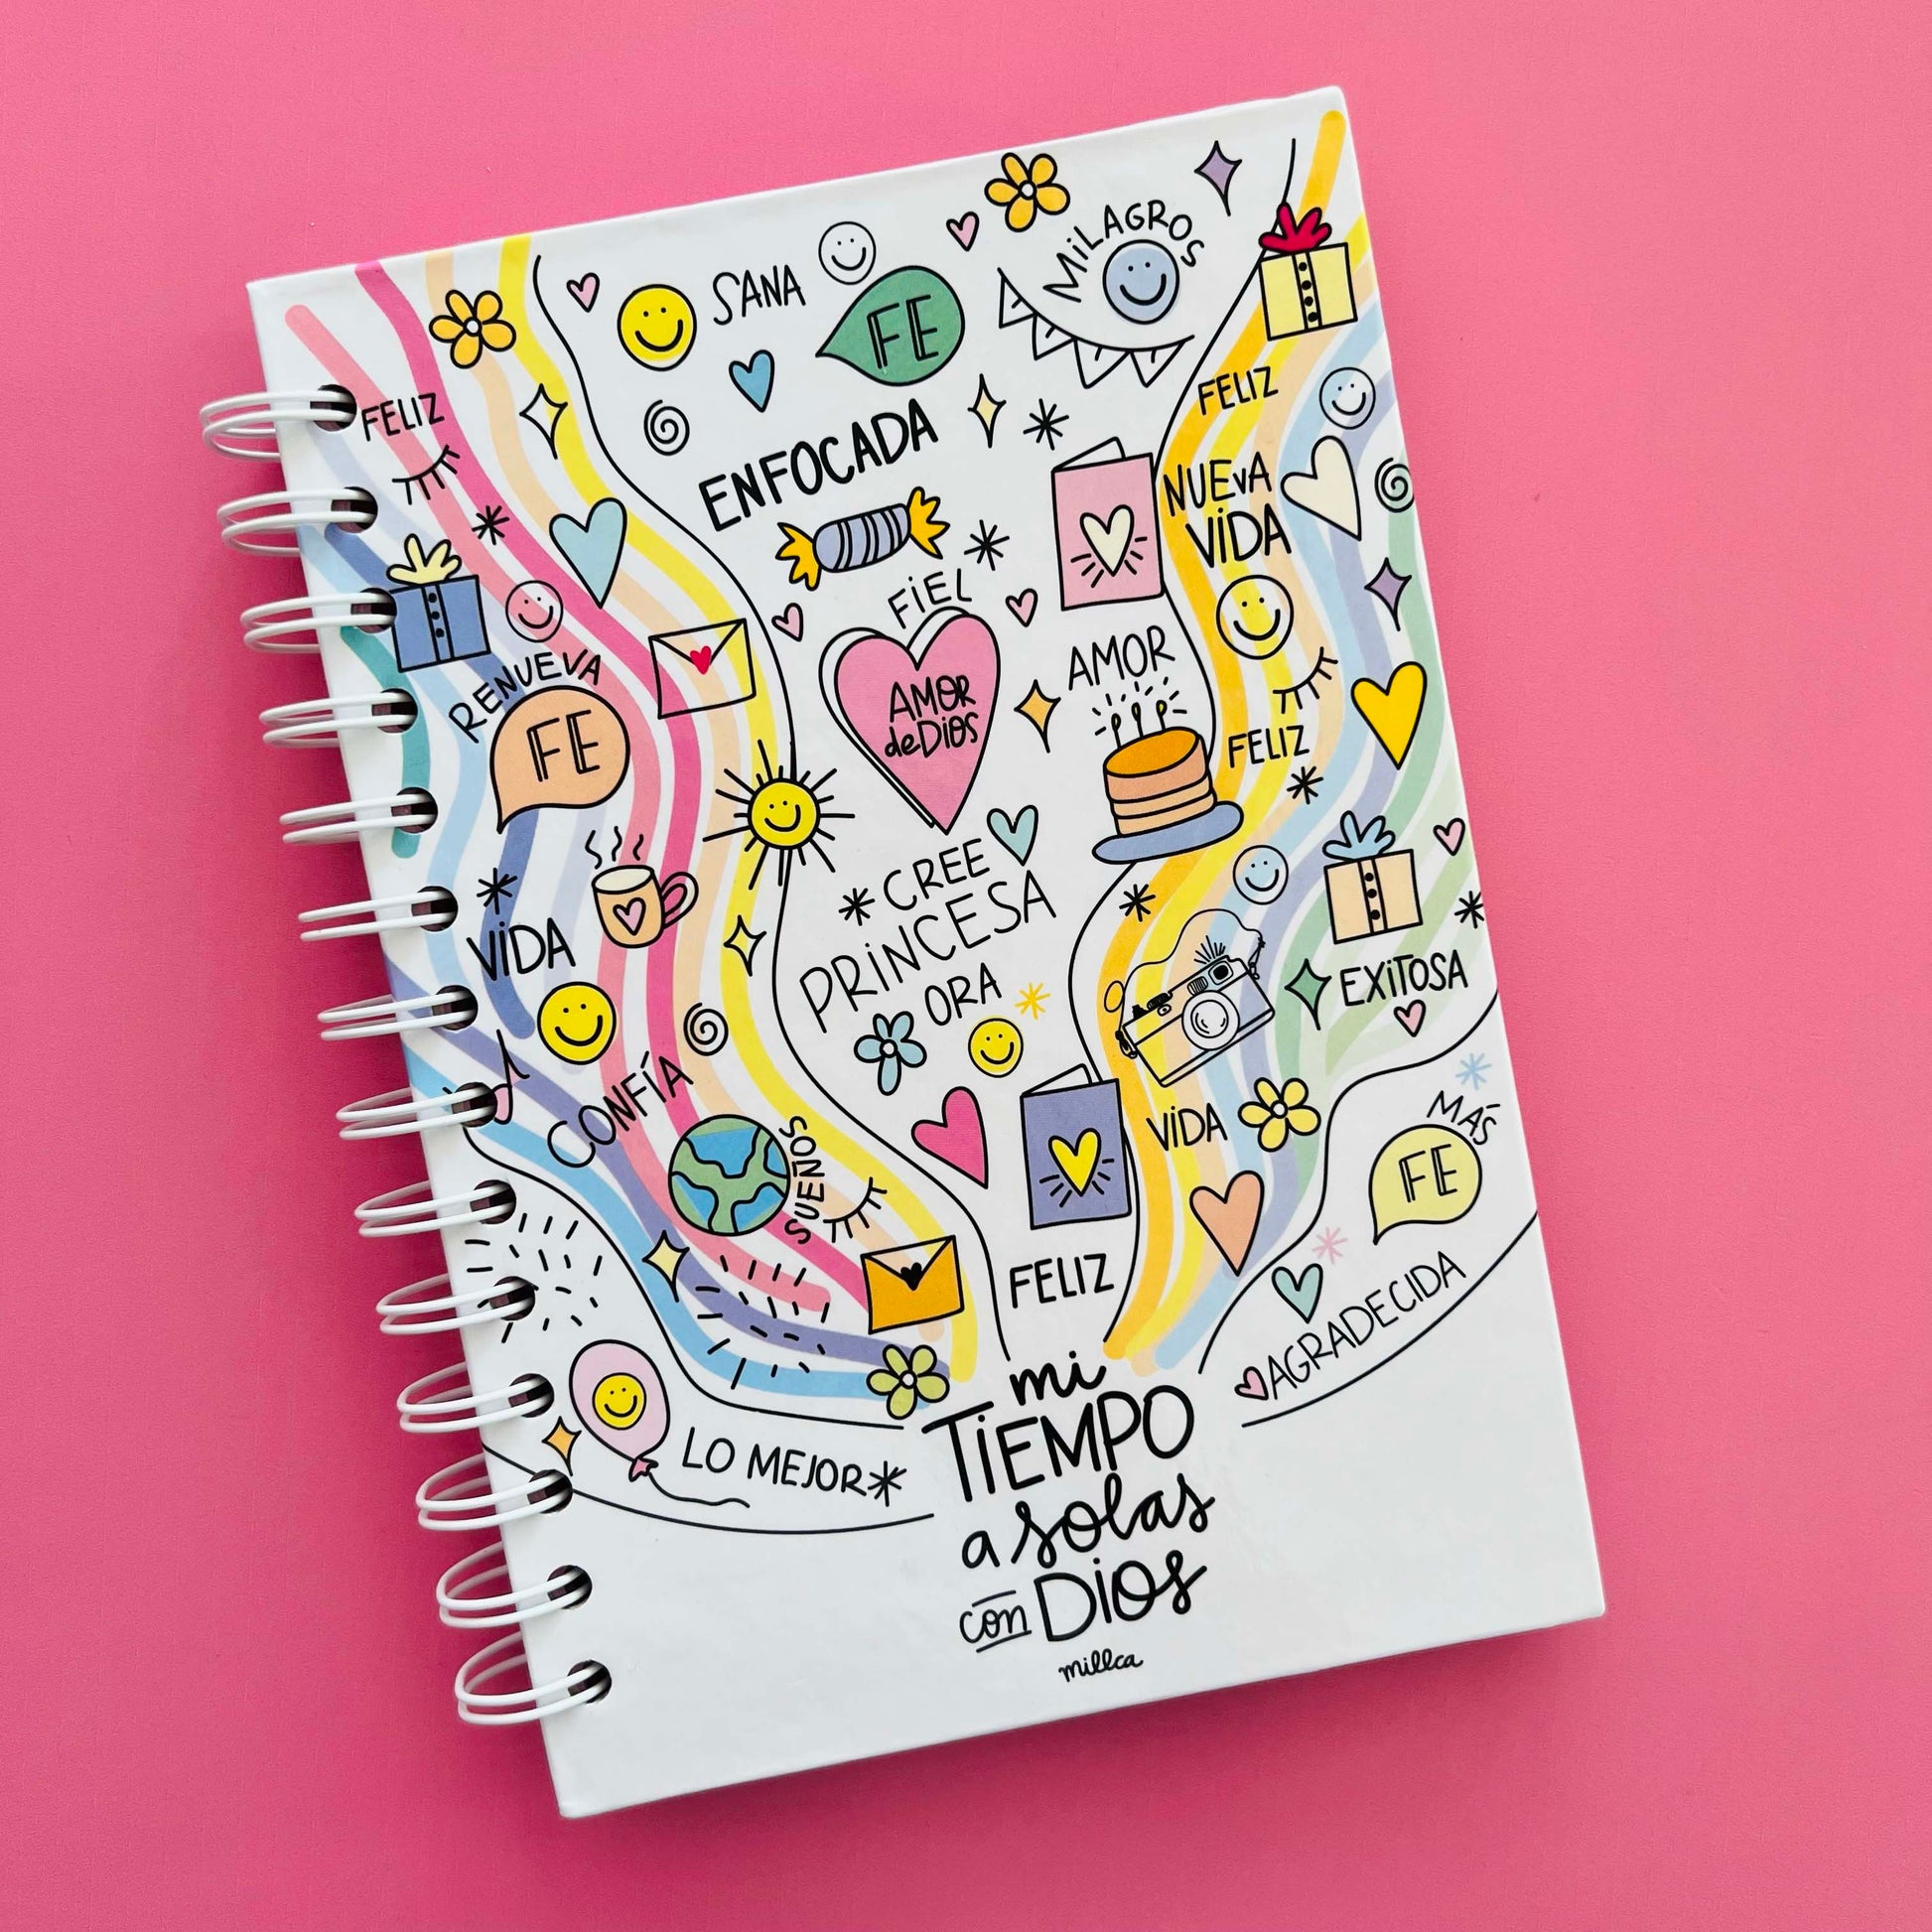 MiLAGROS
SANA
FE
FELIZ
FELIZ
ENFOCADA
NUEVA
ViDA
FiEL
RENUEVA
FE
AMOR
de Dios
AMOR
FELIZ
CREE
PRiNCESA
ORA
ViDA
EXiTOSA
CONFÍA
SUEÑOS
ViDA
MÁS
FE
FELIZ
AGRADECIDA
LO MEJOR
mi
TiEMPO
a solas
con Dios
millca